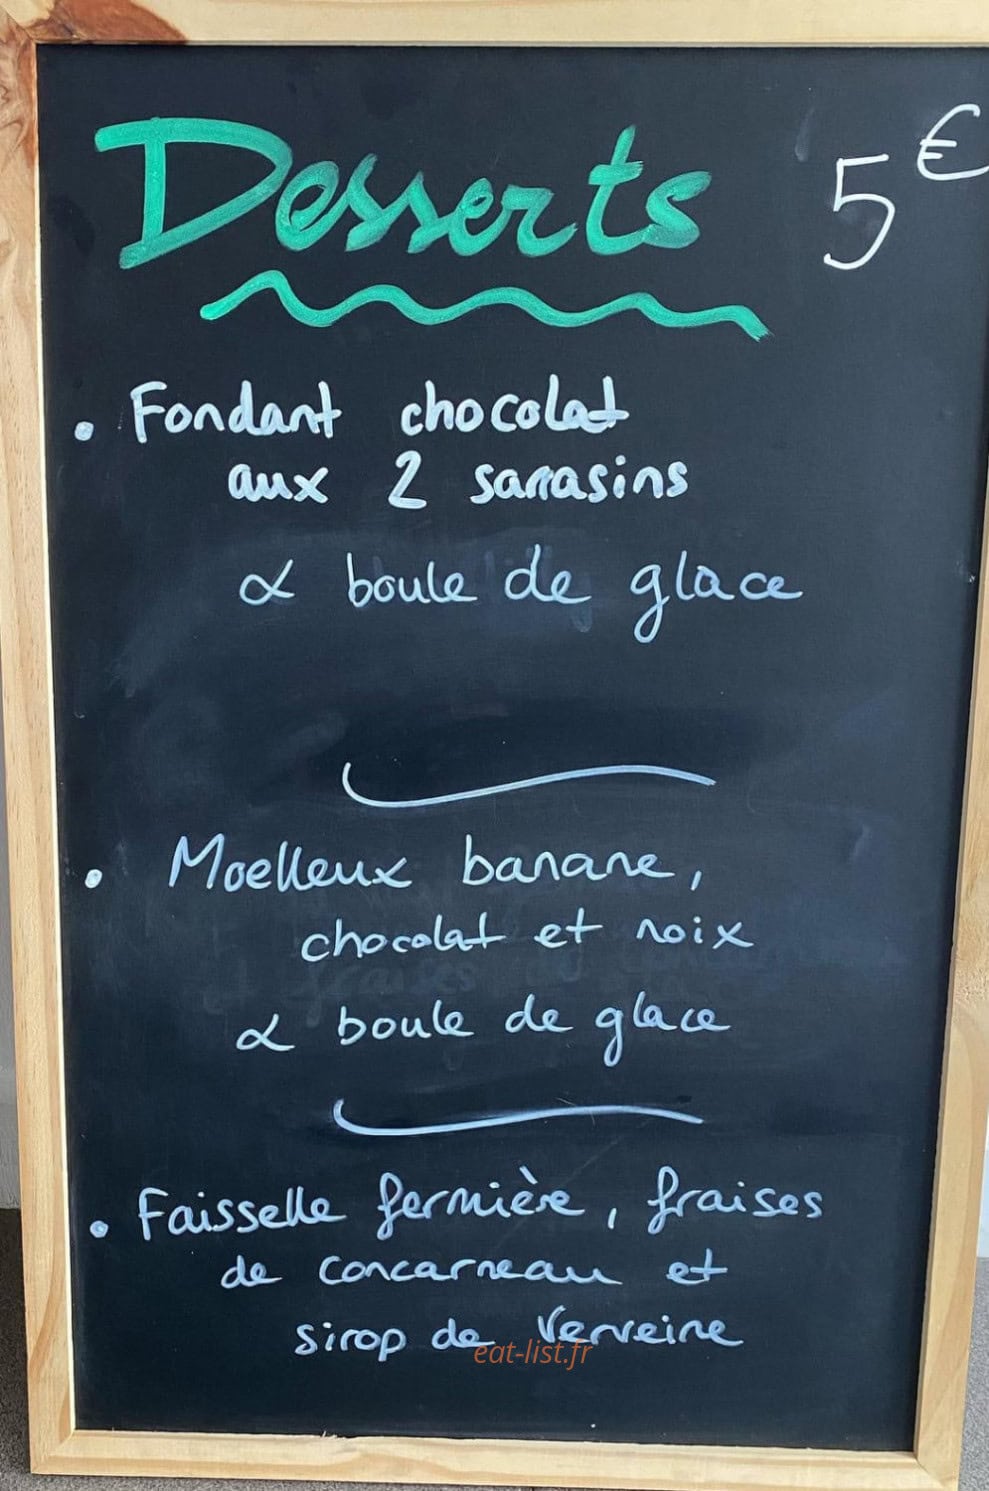 Desserts 5€
• Fondant chocolat
aux 2 sarrasins
& boule de glace
• Moelleux banane,
chocolat et noix
& boule de glace
• Faisselle fermière, fraises
de concarneau et
sirop de Verveine
eat-list.fr